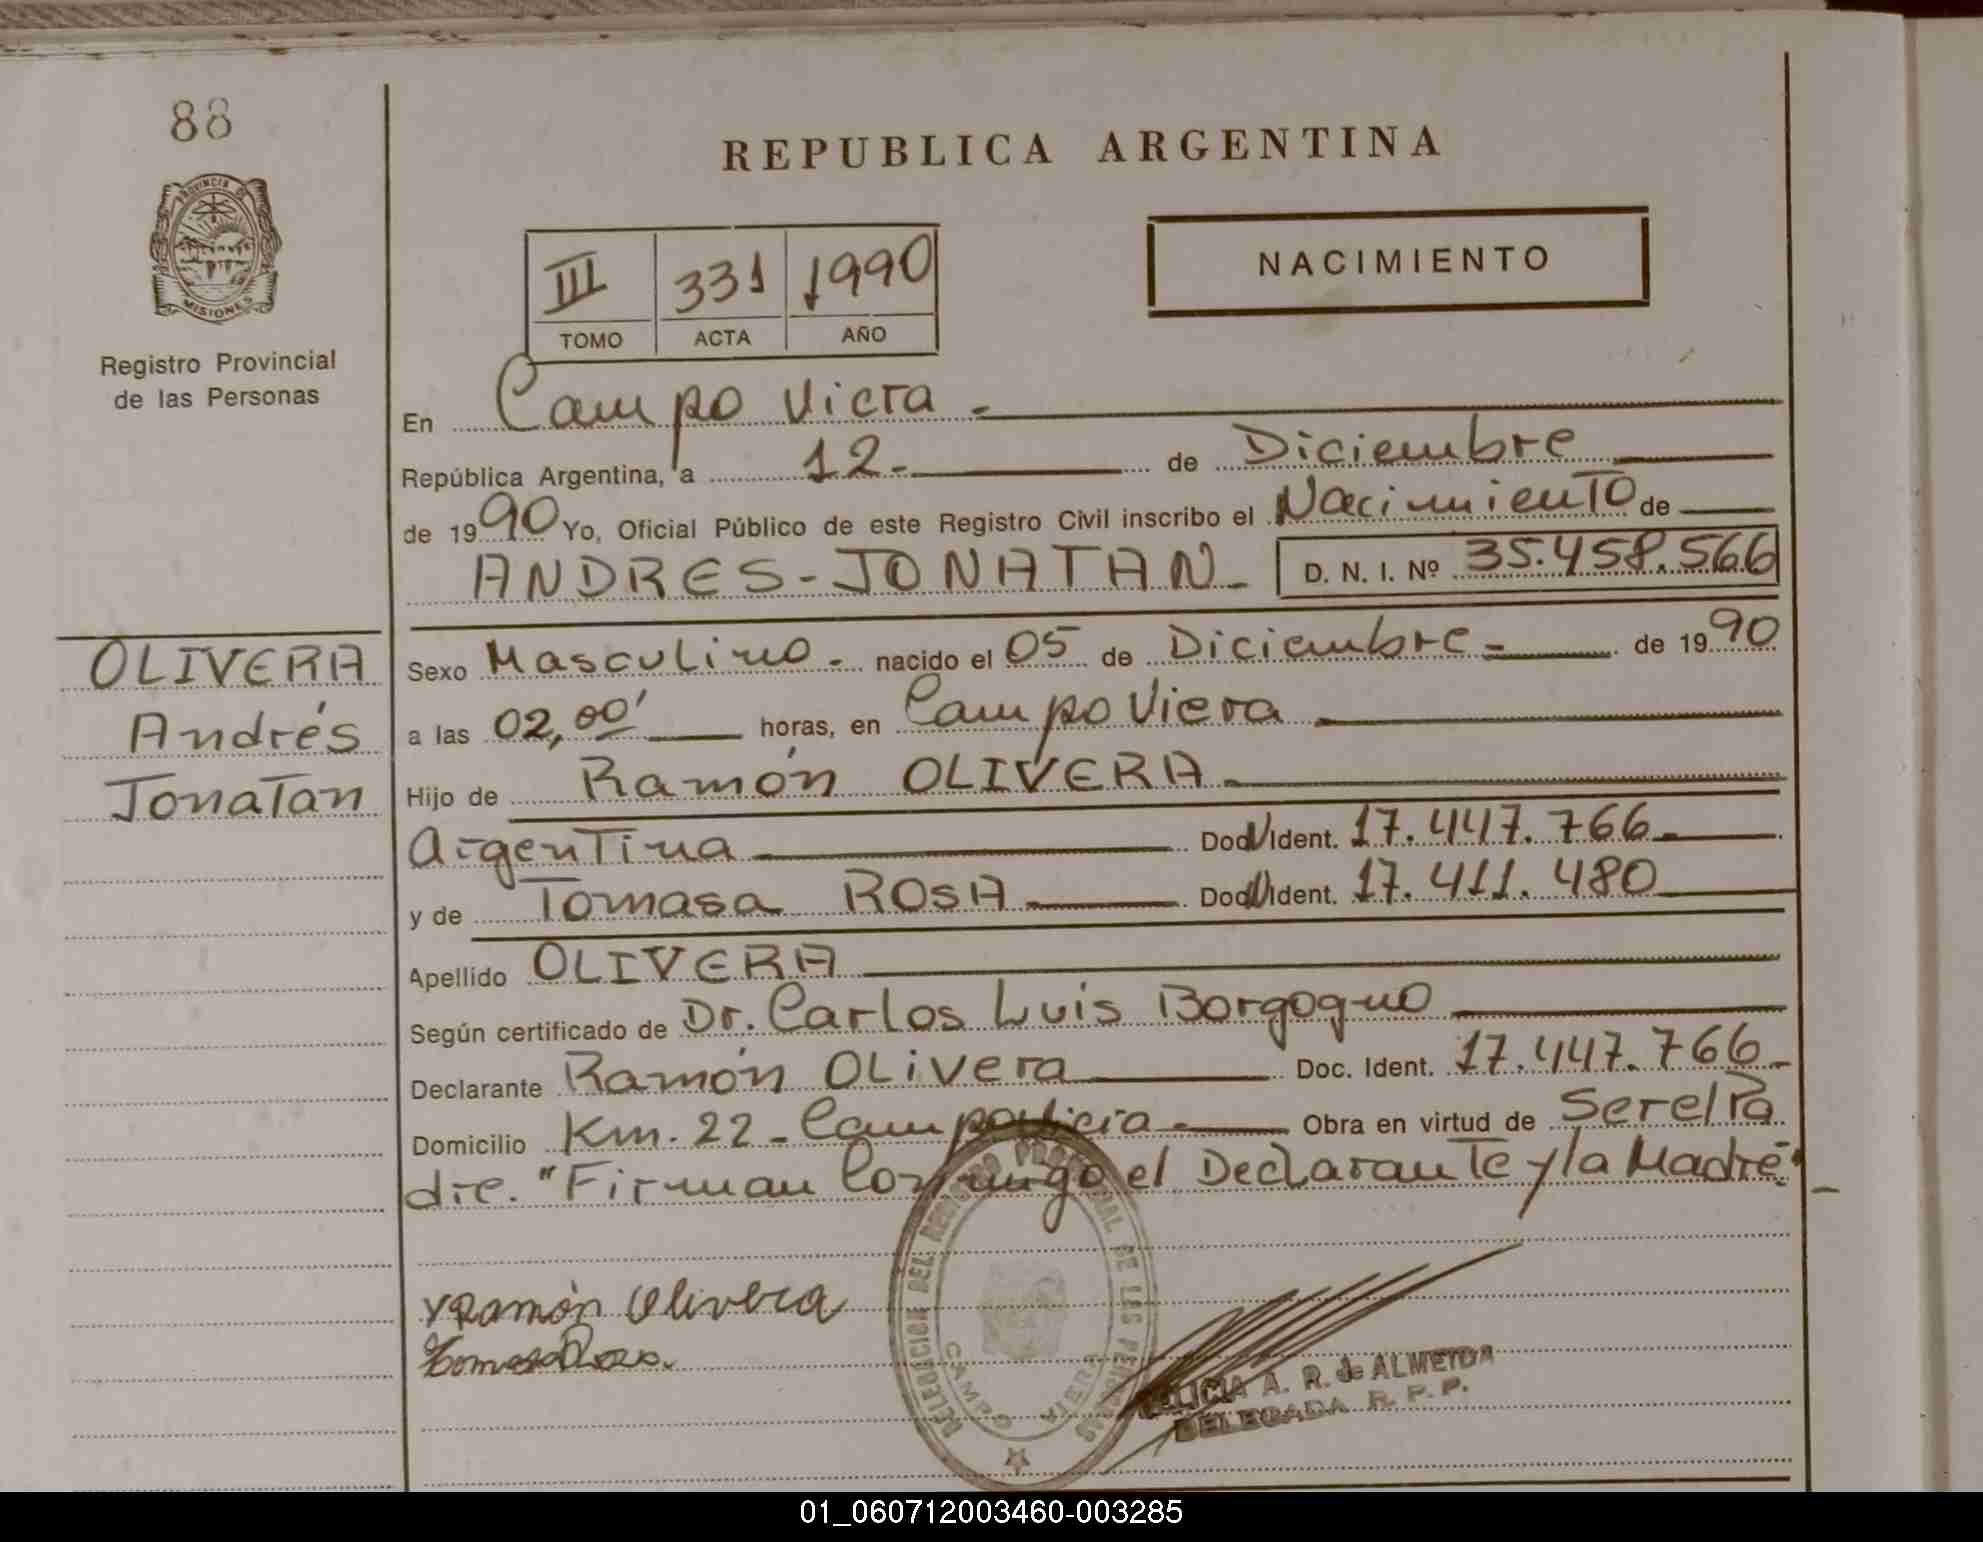 88
PROVINCIA DE
MISIONES
Registro Provincial
de las Personas
OLIVERA
Andrés
Jonatan
REPUBLICA ARGENTINA
NACIMIENTO
III 331 1990
TOMO ACTA AÑO
En Campo Viera -
República Argentina, a 12- de Diciembre
de 1990 Yo, Oficial Público de este Registro Civil inscribo el Nacimiento de
ANDRES-JONATAN- D. N. I. Nº 35.458.566
Sexo Masculino- nacido el 05 de Diciembre- de 1990
a las 02,00' horas, en Campo Viera
Hijo de Ramón OLIVERA-
Argentina DocN Ident. 17.447.766-
y de Tomasa ROSA DocN Ident. 17.411.480
Apellido OLIVERA
Según certificado de Dr. Carlos Luis Borgogno
Declarante Ramón OLivera Doc. Ident. 17.447.766-
Domicilio Km. 22 - Campo Viera - Obra en virtud de Ser el Pa
dre. "Firman Conmigo el Declarante y la Madre" -
Ramón Olivera
Tomasa Rosa.
DELEGACION DEL REGISTRO PROVINCIAL DE LAS PERSONAS
CAMPO VIERA
FELICIA A. R. de ALMEIDA
DELEGADA R. P. P.
01_060712003460-003285